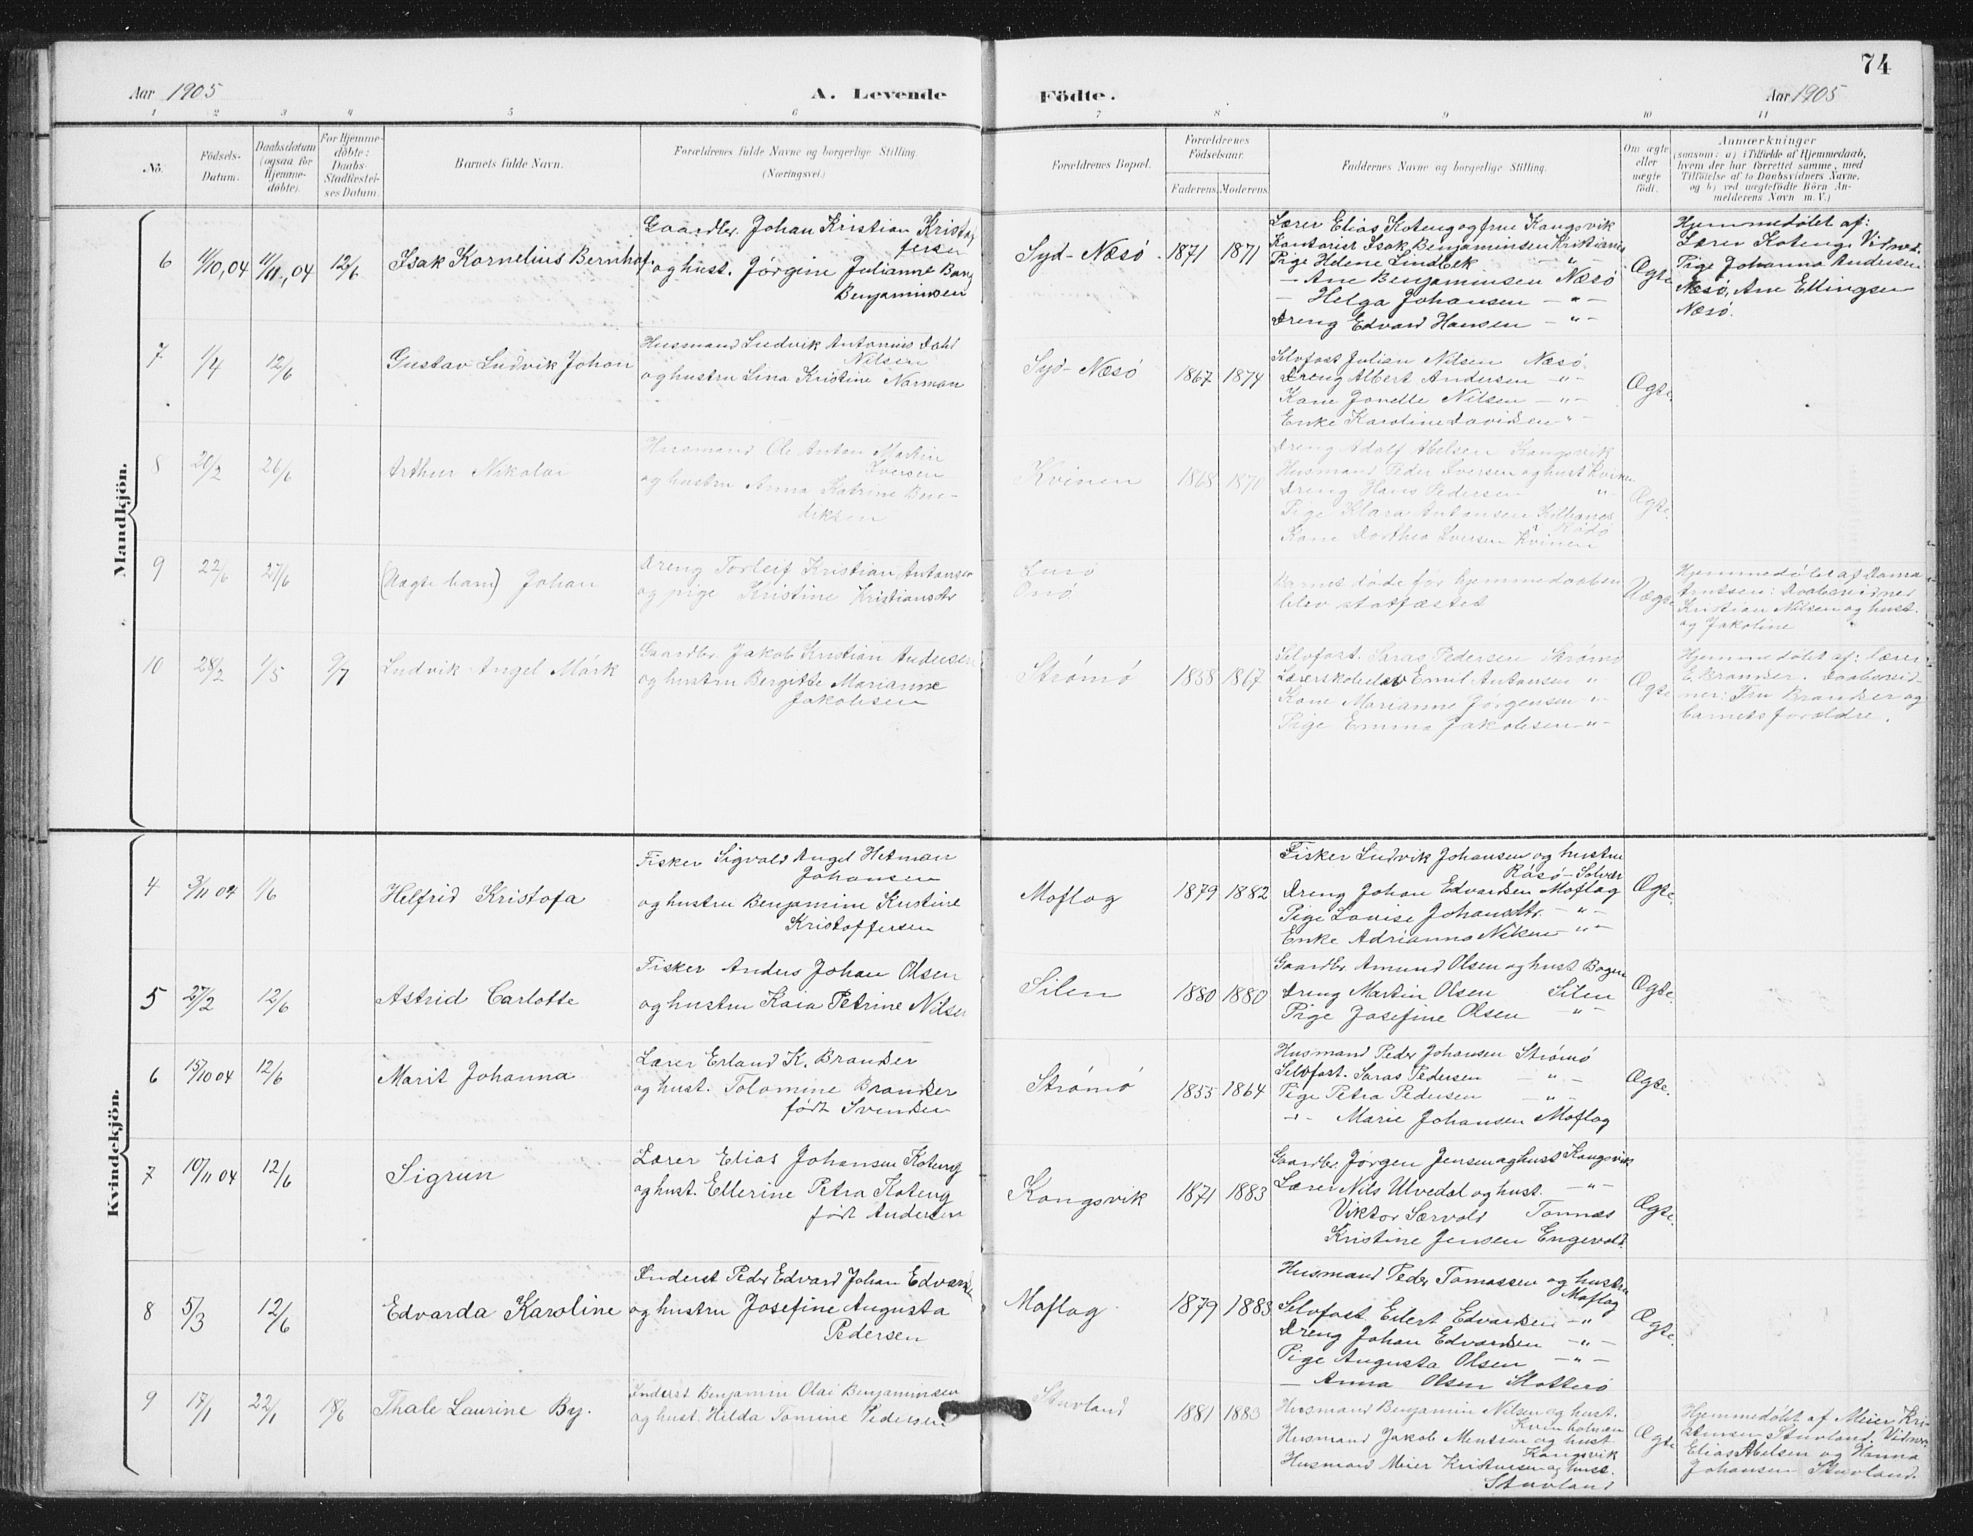 74
Aar 1905
A. Levende
Födte.
Aar 1905
1 2 3 4 5 6 7 8 9 10 11
No.
Födsels-
Datum.
Daabsdatum
(ogsaa for
Hjemme-
döbte).
For Hjemme-
döbte:
Daabs-
Stadfæstel-
ses Datum.
Barnets fulde Navn.
Forældrenes fulde Navne og borgerlige Stilling.
(Næringsvei.)
Forældrenes Bopæl.
Forældrenes
Födselsaar.
Faderens. Moderens.
Faddernes Navne og borgerlige Stilling.
Om ægte
eller
uægte
födt.
Anmærkninger
(saasom: a) i Tilfælde af Hjemmedaab,
hvem der har forrettet samme, med
Tilföielse af to Daabsvidners Navne,
og b) ved uægtefödte Börn An-
melderens Navn m. V.)
Mandkjön.
6
11/10,04
11/11,04
12/6
Isak Kornelius Bernhof.
Gaardbr. Johan Kristian Kristof
fersen
og hust. Jørgine Julianne Bang
Benjaminsen
Syd-Næsö
1871
1871
Lærer Elias Koteng og frue Kongsvik
Kontorist Isak Benjaminsen Kristiania
Pige Helene Lindbek - " -
- Ane Benjaminsen Næsö
- Helga Johansen - " -
Dreng Edvard Hansen - " -
Ægte
Hjemmedøbt af:
Lærer Koteng. Vidner.
Pige Johanna Andersen
Næsö, Ane Ellingsen
Næsö.
7
1/4
12/6
Gustav Ludvik Johan
Husmand Ludvik Antonius Dahl
Nilsen
og hustru Lina Kristine Norman
Syd-Næsö
1867
1874
Selvfost Julian Nilsen Næsö.
Dreng Albert Andersen - " -
Kone Jonette Nilsen - " -
Enke Karoline Davidsen " -
Ægte.
8
20/2
26/6
Arthur Nikolai
Husmand Ole Anton Martin
Iversen
og hustru Anna Katrine Ben-
diksen
Kvinen
1868
1870
Dreng Adolf Abelsen Kongsvik
Husmand Peder Iversen og hust Kvinen
Dreng Hans Pedersen "
Pige Klara Antonsen
Kone Dorthea Iversen Kvinen
Ægte.
9
22/6
27/6
(Uægte barn) Johan
Dreng Torleif Kristian Antonsen
og pige Kristine Kristiansdtr
Onö
Barnet døde før hjemmedaaben
blev statfæstet
Uægte
Hjemmedøbt af
Arntsen: Daabsvidner
Kristian Nilsen og hust.
og Jakoline
10
28/2
1/5
9/7
Ludvik Angel Mörk
Gaardbr. Jakob Kristian Andersen
og hustru Bergitte Marianne
Jakobsen
Strömö
1858
1867
Selvfost. Saras Pedersen Strömö
Lærerskoleelev Emil Antonsen "
Kone Marianne Jørgensen "
Pige Emma Jakobsen - " -
Ægte
Hjemmedøbt af: Lærer
E. Brandser. Daabsvid-
ner: Fru Brandser og
barnets forældre.
Kvindekjön.
4
3/11 04
1/6
Helfrid Kristofa
Fisker Sigvald Angel Hetman
Johansen
og hustru Benjamine Kristine
Kristoffersen
Moflag
1879
1882
Fisker Ludvik Johansen og hustru
Råsö-Solvær
Dreng Johan Edvardsen Moflag
Pige Lovise Johansdtr. - " -
Enke Adrianna Nilsen - " -
Ægte.
5
27/2
12/6
Astrid Carlotte
Fisker Anders Johan Olsen
og hustru Kaia Petrine Nilsen
Silen
1880
1880
Gaardbr. Amund Olsen og hust Bogen
Dreng Martin Olsen Silen
Pige Josefine Olsen - " -
Ægte.
6
15/10 04
12/6
Marit Johanna
Lærer Erland K. Brandser
og hust. Tolomine Brandser
født Svendsen
Strömö
1855
1864
Husmand Peder Johansen Strömö
Selvfost. Saras Pedersen - " -
Pige Petra Pedersen - " -
- " - Marie Johansen Moflag
Ægte.
7
10/11 04
12/6
Sigrun
Lærer Elias Johansen Koteng
og hust. Ellerine Petra Koteng
født Andersen
Kongsvik
1871
1883
Gaardbr. Jørgen Jensen og hust Kongsvik
Lærer Nils Ulvedal og hust. - " -
Viktor Særvold Tonnæs
Kristine Jensen Engevold.
Ægte.
8
5/3
12/6
Edvarda Karoline
Inderst Peder Edvard Johan Edvardsen
og hustru Josefine Augusta
Pedersen
Moflag
1879
1883
Husmand Peder Tomassen og hustru
Moflag
Selvfost Eilert Edvardsen - " -
Dreng Johan Edvardsen - " -
Pige Augusta Olsen - " -
- Anna Olsen Slotterö
Ægte.
9
17/1
22/1
18/6
Thale Laurine By.
Inderst. Benjamin Olai Benjaminsen
og hust. Hilda Tomine Pedersen.
Stuvland
1881
1883
Husmand Benjamin Nilsen og hust.
Kvinholmen
Husmand Jakob Mentsen og hust
Kongsvik
Husmand Meier Kristensen og hust.
Stuvland
Ægte
Hjemmedøbt af Meier Kri-
stensen Stuvland. Vidner
Elias Abelsen og Hanna
Johansen Stuvland.